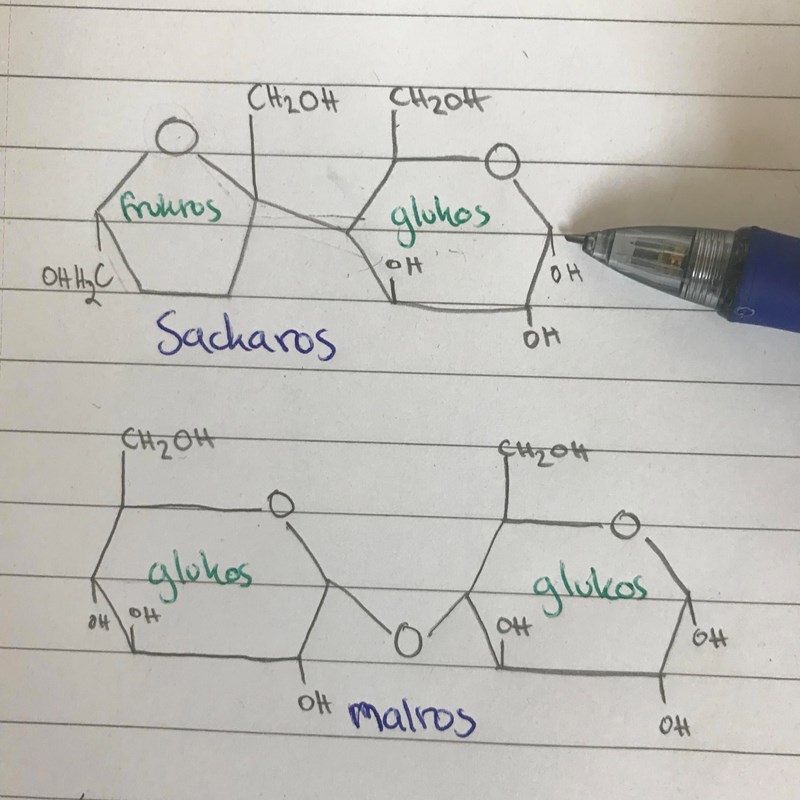 CH2OH CH2OH
O O
fruktos glukos
OH
OHH2C OH
OH
Sackaros
CH2OH CH2OH
O O
glukos glukos
OH OH OH
O OH
OH maltos OH